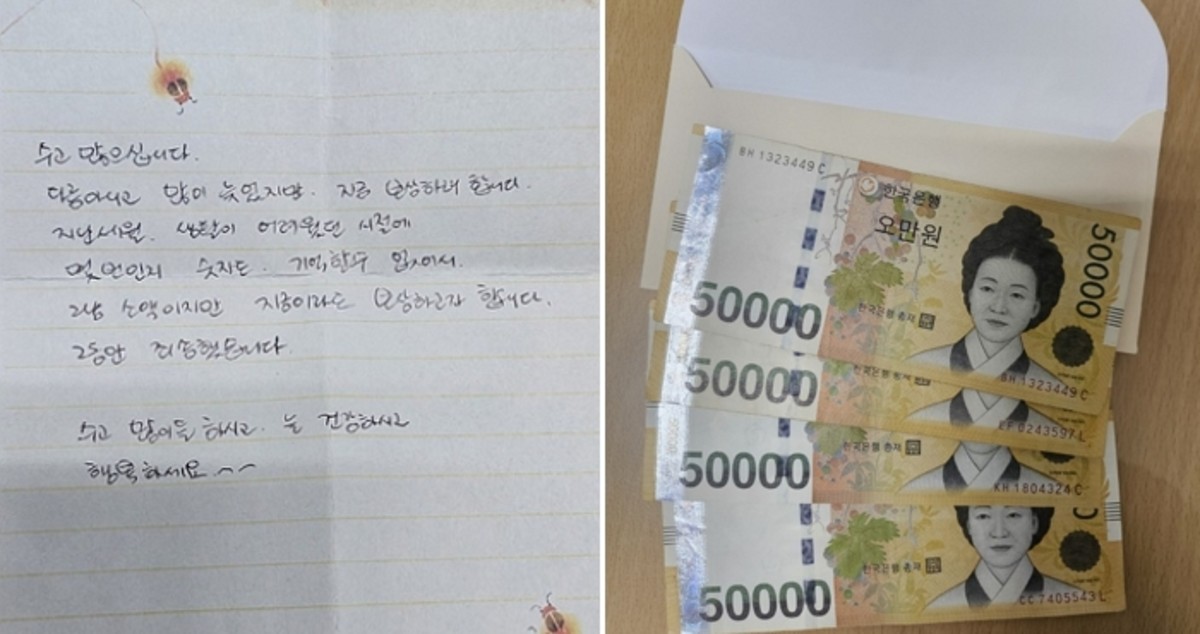 수고 많으십니다.
다름아니고 많이 늦었지만. 지금 보상하려 합니다.
지난세월. 생활이 어려웠던 시절에
몇번인지 숫자도. 기억할수 없어서.
그냥 소액이지만 지금이라도 보상하고자 합니다.
그동안 죄송했습니다.
수고 많이들 하시고. 늘 건강하시고
행복하세요~~
BH 1323449 C
한국은행
오만원
50000
한국은행 총재
50000
BH 1323449 C
50000
한국은행 총재
0243597 L
50000
한국은행 총재
KH 1804324 C
50000
한국은행 총재
CC 7405543 L